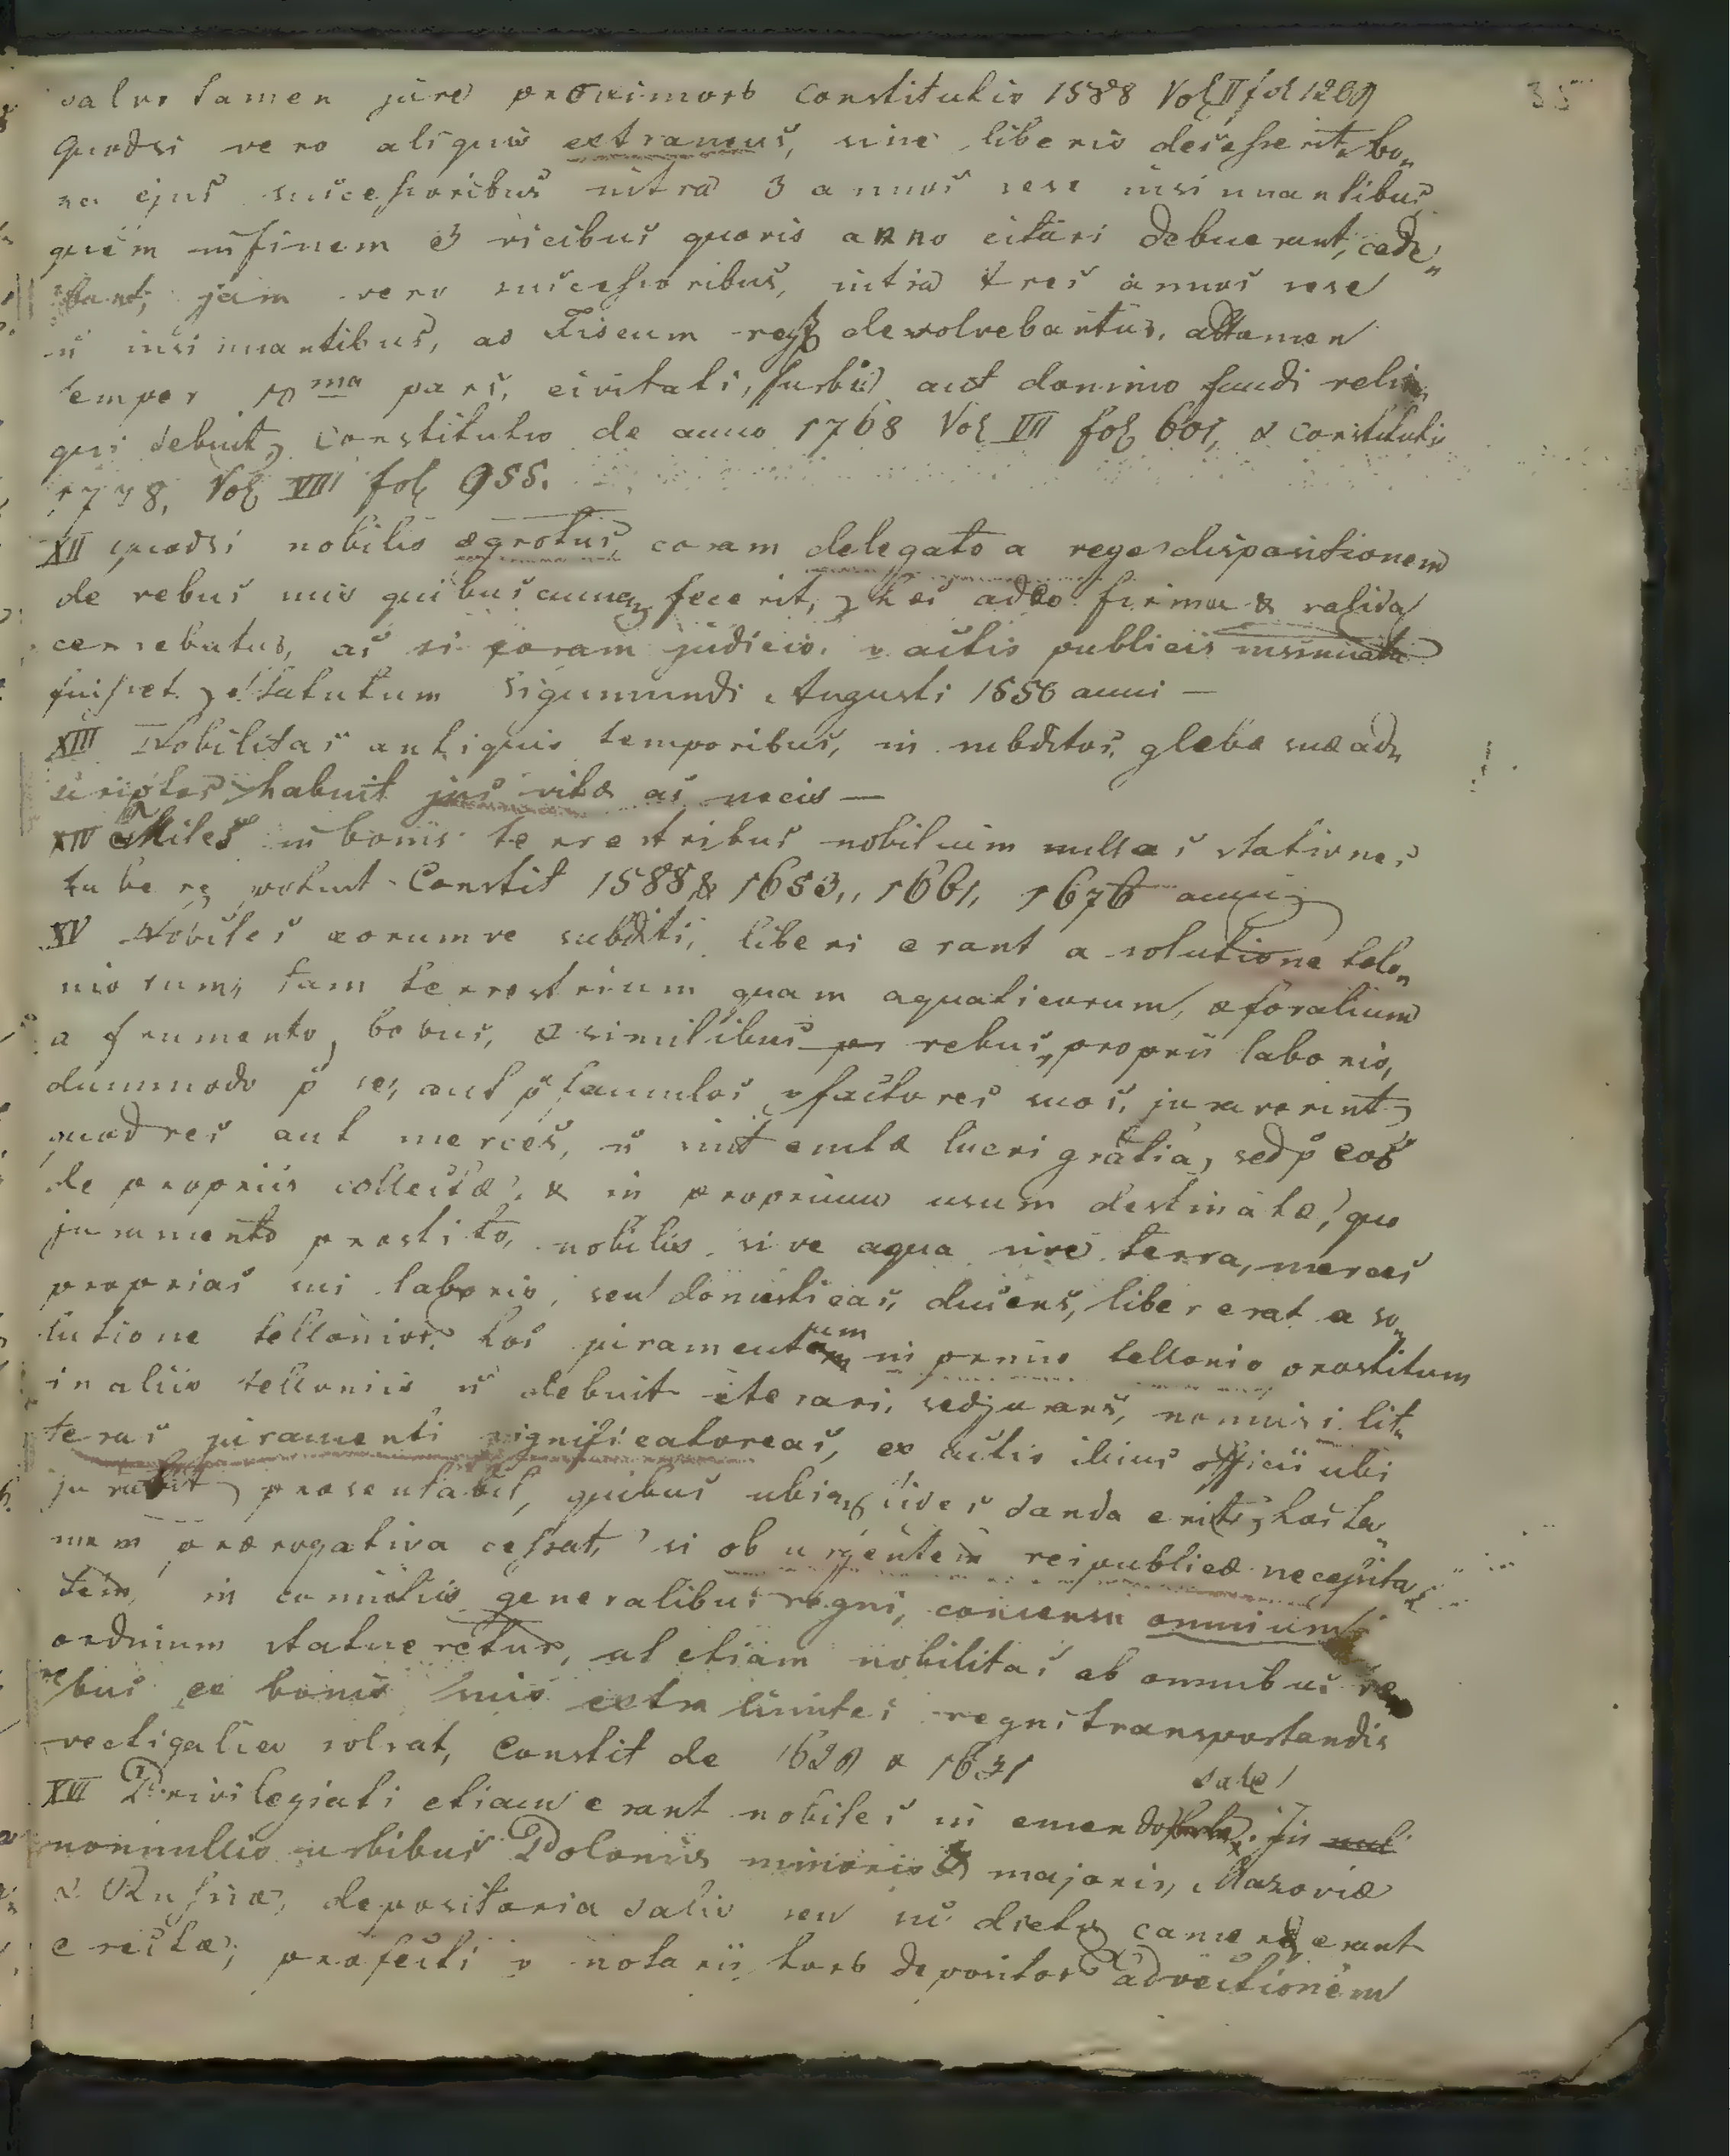 35
salvo tamen jure proximorb Constitutio 1588 Vol II fol 1209
Quodsi vero aliquis extraneus, sine liberis decesserit, bo„
na ejus successoribus intra 3 annos sese insinuantibus
quem in finem 3 vicibus quovis anno citari debuerant, cede„
bant, jam vero successoribus, intra tres annos sese
n̄ insinuantibus, ad Fiscum devolvebantur, attamen
semper 10ma pars, civitati, urbi, aut domino fundi relin„
qui debuit, Constitutio de anno 1768 Vol VII fol 601, & Constitutio
1778, Vol VIII fol 955.
XII quodsi nobilis ægrotus, coram delegato a rege dispositionem
de rebus suis quibuscunq fecerit, hæc adeo firma & valida
censebatur, ac si coram judicio, v actis publicis insinuata
fuisset, Statutum Sigismundi Augusti 1550 anni —
XIII Nobilitas antiquis temporibus, in subditos, glebæ suæ ad„
scriptos habuit jus vitæ ac necis —
XIV Miles in bonis terrestribus nobilium nullas stationes
habere potuit Constit 1588 & 1653,, 1661, 1676 anni
XV Nobiles eorumve subditi, liberi erant a solutione telo„
niorum, tam terrestrium quam aquaticorum, & foralium
a frumento, bobus, & similibus rebus, proprii laboris,
dummodo p se, aut p famulos v factores suos, juraverint,
quod res aut merces, n̄ sint emtæ lucri gratia, sed p eos
de propriis collectæ, & in proprium usum destinatæ, quo
juramento præstito, nobilis, sive aqua sive terra, merces
proprias sui laboris, seu domesticas, ducens, liber erat a so„
lutione tellonior. hoc juramentum in primo tellonio præstitum
in aliis telloniis n̄ debuit iterari, sed jurans, nonnisi lit„
teras juramenti significatoreas, ex actis illius officii ubi
juravit, præsentabit, quibus ubiq fides danda erit, hæc ta„
men prærogativa cessat, si ob urgentem reipublicæ necessita„
tem, in comitiis generalibus regni, consensu omnium
ordinum statueretur, ut etiam nobilitas ab omnibus re„
bus ex bonis suis extra limites regni transportandis
vectigalia solvat, Constit de 1629 & 1631
XVI Privilegiati etiam erant nobiles in emendo sale! In
nonnullis urbibus Poloniæ minoris & majoris, Mazoviæ
& Russiæ, depositoria salis seu sic dictæ cameræ erant
erectæ, præfecti v notarii horb depositor advectionem